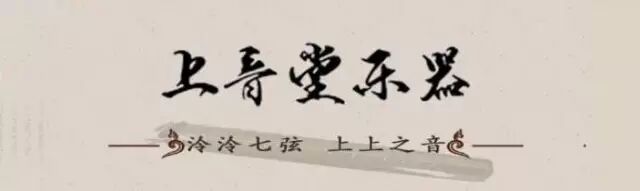 上音堂乐器
泠泠七弦 上上之音